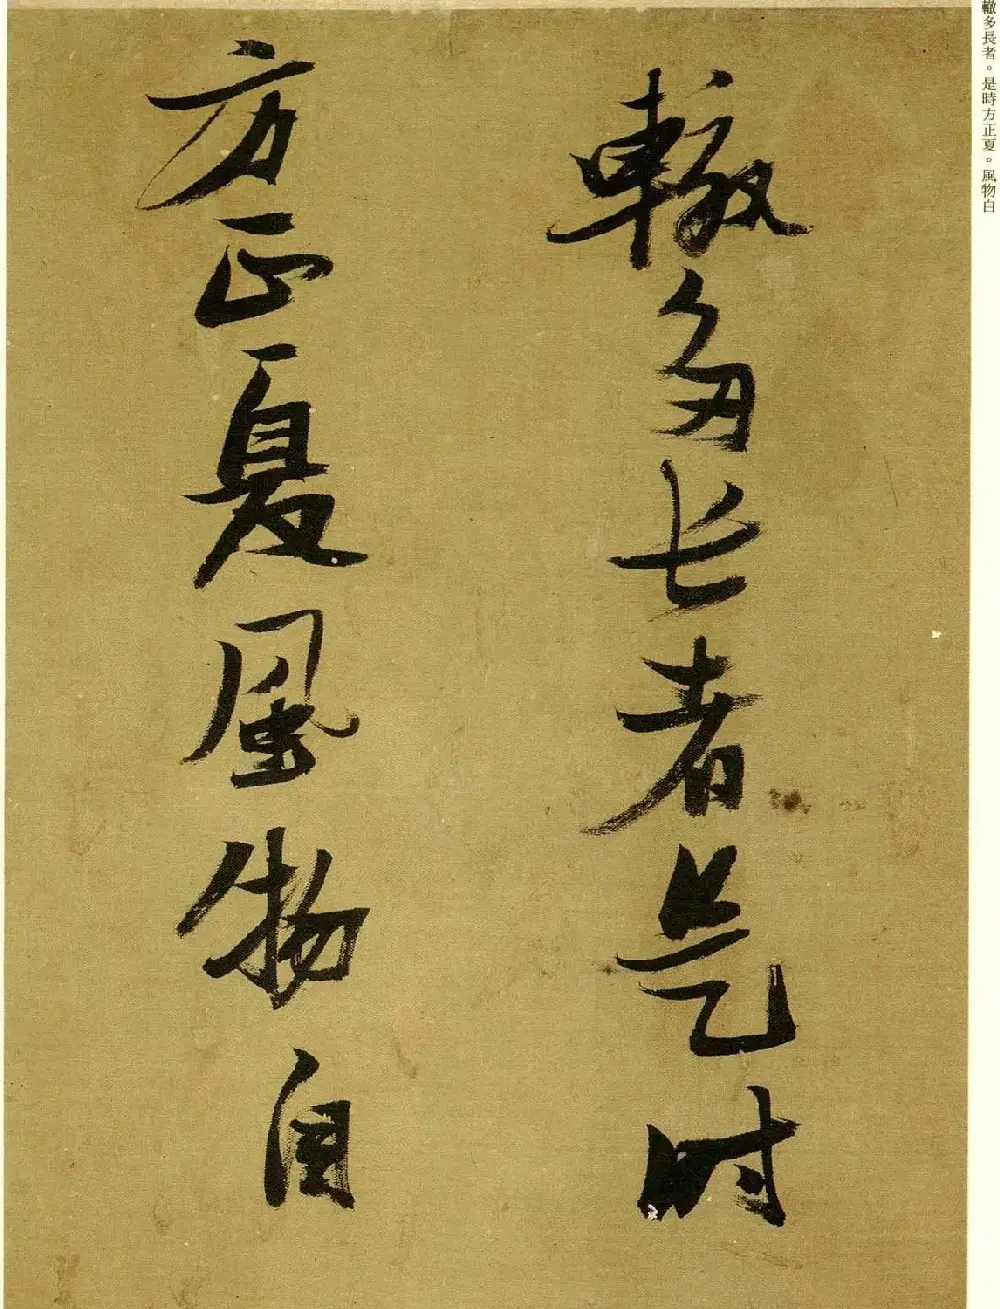 轍多長者。是時方正夏。風物白
轍多长者是时
方正夏風物自